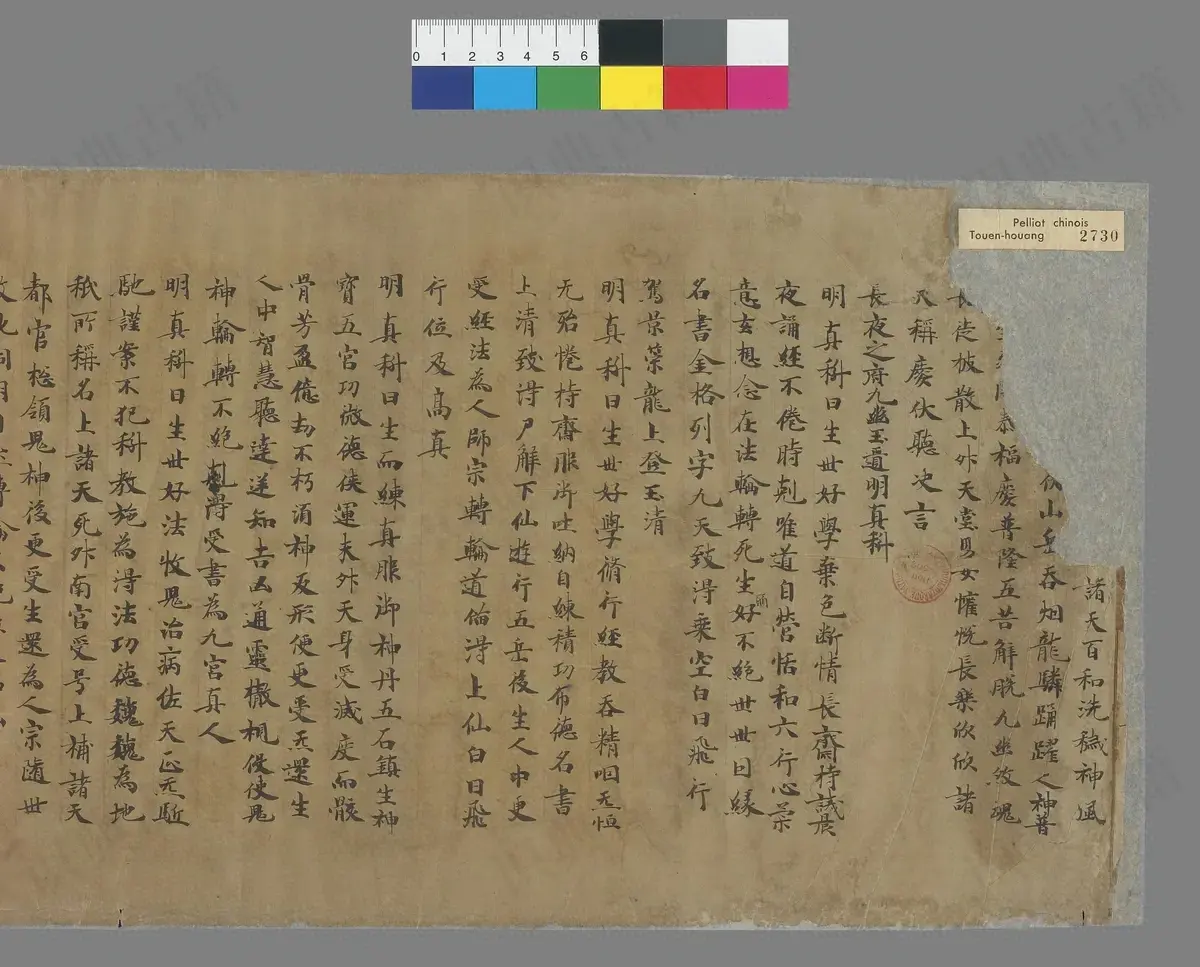 0 1 2 3 4 5 6
Pelliot chinois
Touen-houang 2730
諸天百和洗穢神風
山岳吞烟龍驎踊躍人神普
泰福慶普隆五苦解脫九幽後魂
長徒披散上升天堂男女慷慨長樂欣欣諸
天稱慶伏聽决言
長夜之府九幽玉匱明真科
明真科曰生世好學棄色断情長齋持誡晨
夜誦經不倦時剋唯道自營恬和六行心栄
意玄想念在法輪轉死生好不絕世世因緣
名書金格列字九天致淂乗空白日飛行
駕景策龍上登玉清
明真科曰生世好學脩行經教吞精咽炁恒
无殆惓持齋服御吐納自練積功布德名書
上清致淂尸解下仙遊行五岳後生人中更
受經法為人師宗轉輪道備淂上仙白日飛
行位及髙真
明真科曰生而練真服御神丹五石鎮生神
寶五官功微德侠運未升天身受滅度而骸
骨芳盈億劫不朽湏神反形便更受炁還生
人中智慧聽達逆知吉凶通靈徹視役使鬼
神輪轉不絕剋淂受書為九宮真人
明真科曰生世好法收鬼治病佐天正炁馳
馳謹案不犯科教施為淂法功德巍巍為地
秖所稱名上諸天死升南宮受号上補諸天
都官総領鬼神後更受生還為人宗隨世